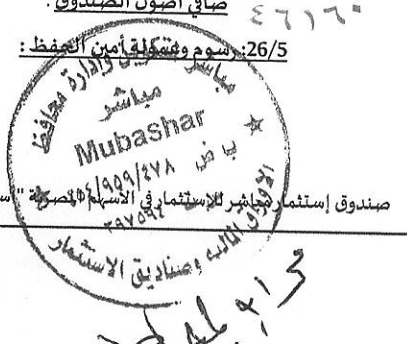 صافي أصول الصندوق .
٤٦١٦٠
26/5: رسوم وعمولة أمين الحفظ :
مباشر
تكوين وإدارة محافظ
مباشر
Mubashar
ب ض
٤٧٨/٩٥٩/
الأوراق المالية وصناديق الاستثمار
صندوق إستثمار مباشر للإستثمار في الاسهم المصرية "